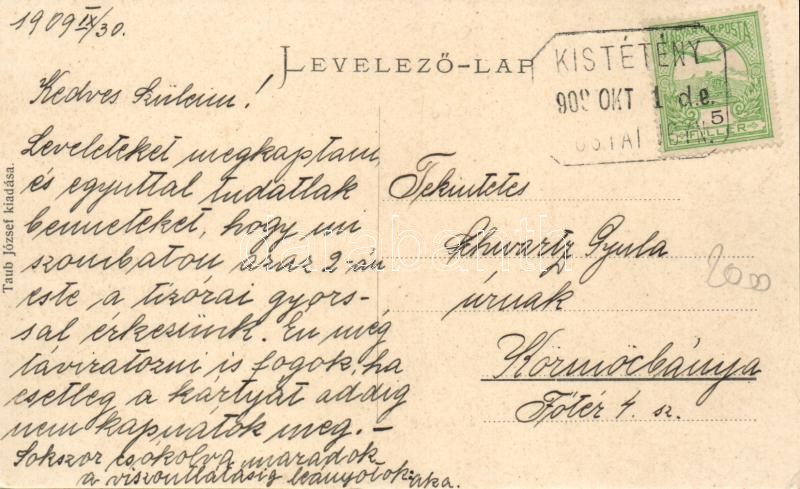 1909 IX/30.
LEVELEZŐ-LAP
KISTÉTÉNY
909 OKT 1 d.e.
MAGYAR KIR. POSTA
5
FILLER
Kedves Szüleim!
Leveleteket megkaptam,
és egyuttal tudatlak
benneteket, hogy mi
szombaton azaz 2-án
este a tizórai gyors-
sal érkezünk. Én még
táviratozni is fogok, ha
esetleg a kártyát addig
nem kapnátok meg. –
Sokszor csókolva maradok
a viszontlátásig leányotok:
Tekintetes
Schwartz Gyula
úrnak
Körmöcbánya
Főtér 4. sz.
2000
Taub József kiadása.
darabanth